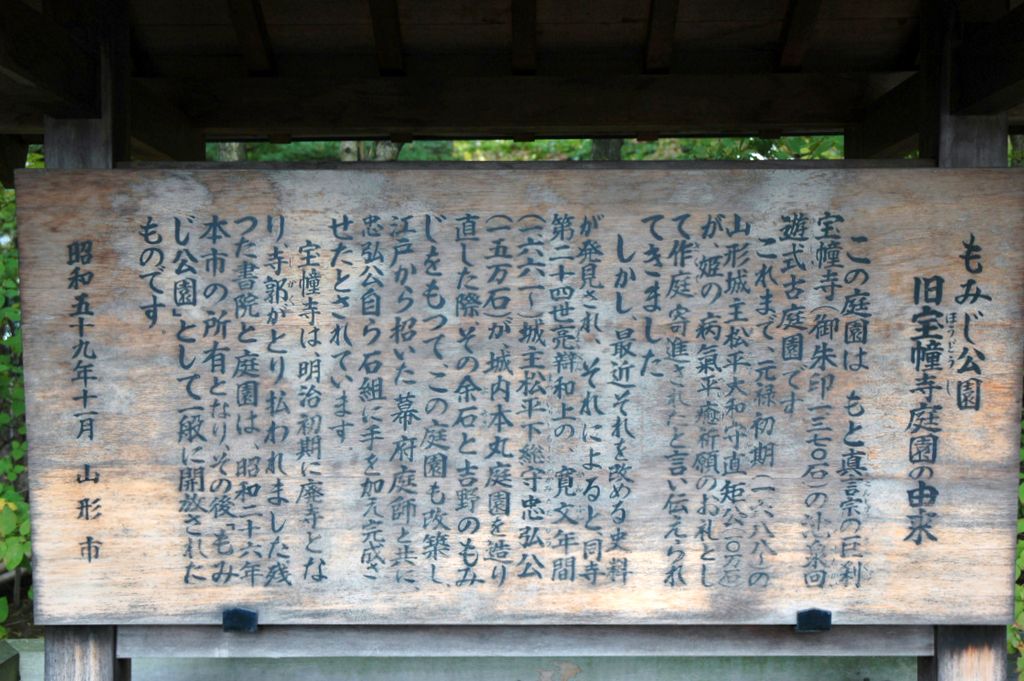 もみじ公園
旧宝幢寺庭園の由来
ほうどうじ
この庭園は もと真言宗の巨刹
宝幢寺(御朱印一三七〇石)の池泉回
遊式古庭園です
これまで 元禄初期(一六八八〜)の
山形城主松平大和守直矩公(一〇万石)
が、姫の病氣平癒祈願のお札とし
て作庭寄進されたと言い伝えられ
てきました
しかし、最近それを改める史料
が発見され、それによると同寺
第二十四世亮辯和上の、寛文年間
(一六六一〜)城主松平下総守忠弘公
(一五万石)が城内本丸庭園を造り
直した際その余石と吉野のもみ
じをもってこの庭園も改築し、
江戸から招いた幕府庭師と共に、
忠弘公自ら石組に手を加え完成さ
せたとされています
宝幢寺は、明治初期に廃寺とな
り、寺郭がとり払われました残
った書院と庭園は、昭和二十六年
本市の所有となり、その後「もみ
じ公園」として一般に開放された
ものです
昭和五十九年十一月 山形市